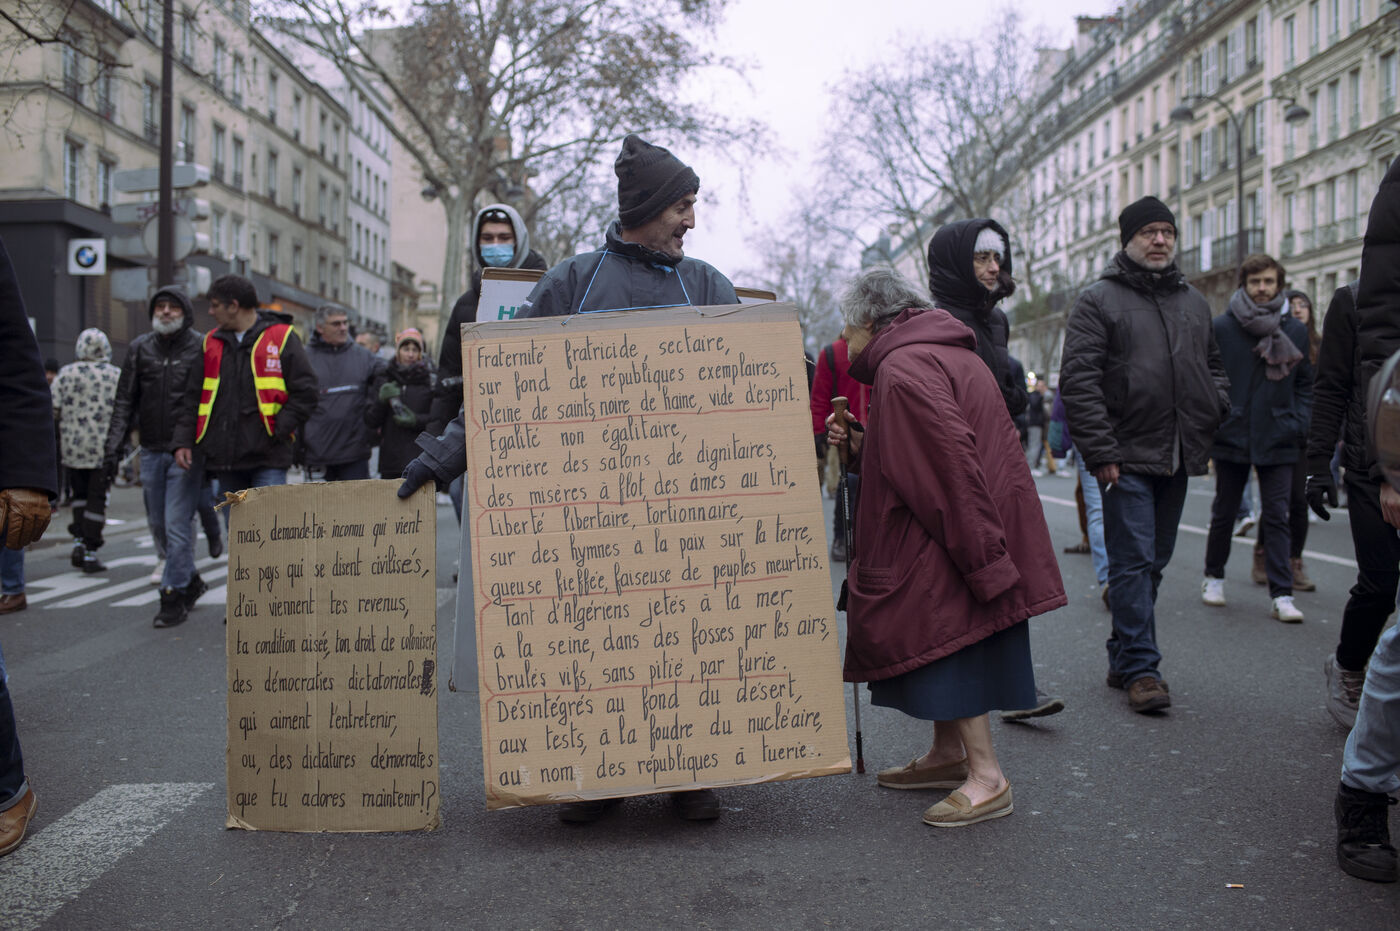 BMW
H
cgt
Fraternité fratricide, sectaire,
sur fond de républiques exemplaires,
pleine de saints, noire de haine, vide d'esprit.
Egalité non égalitaire,
derrière des salons de dignitaires,
des misères à flot, des âmes au tri.
Liberté libertaire, tortionnaire,
sur des hymnes à la paix sur la terre,
gueuse fieffée, faiseuse de peuples meurtris.
Tant d'Algériens jetés à la mer,
à la seine, dans des fosses par les airs,
brulés vifs, sans pitié, par furie.
Désintégrés au fond du désert,
aux tests, à la foudre du nucléaire,
au nom des républiques à tuerie..
mais, demande-toi inconnu qui vient
des pays qui se disent civilisés,
d'où viennent tes revenus,
ta condition aisée, ton droit de coloniser,
des démocraties dictatoriales
qui aiment t'entretenir,
ou, des dictatures démocrates
que tu adores maintenir!?